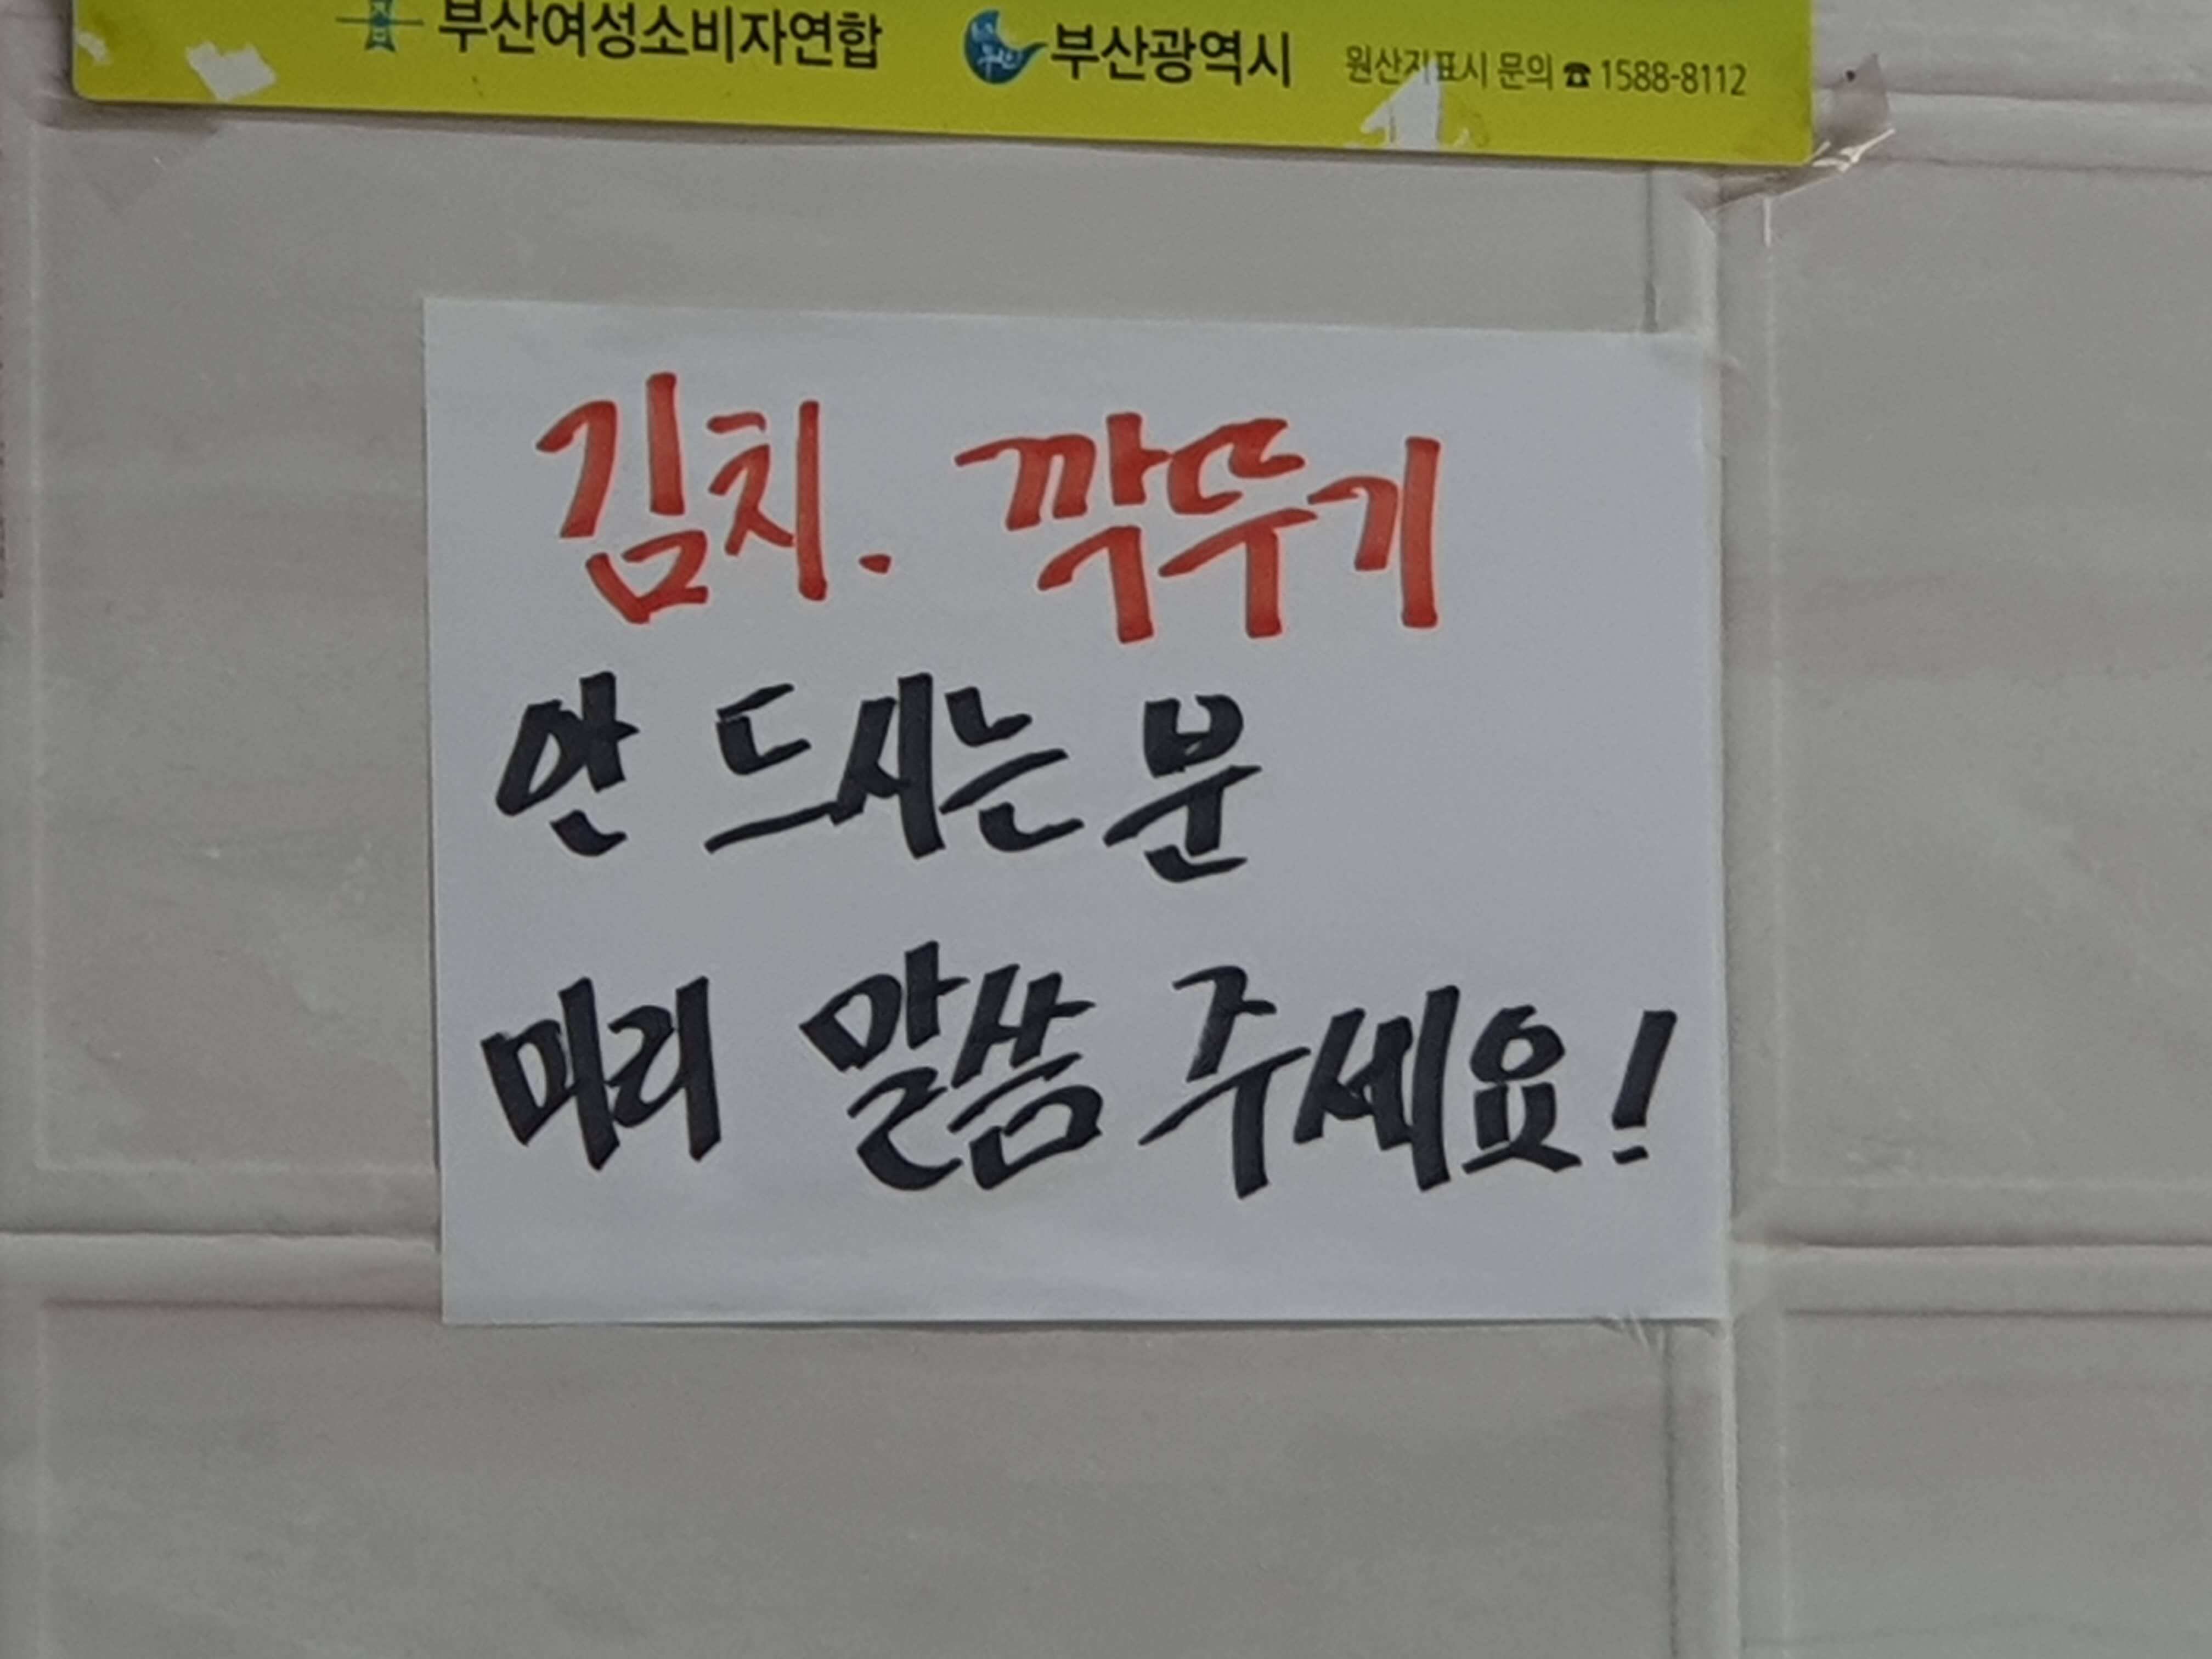 부산여성소비자연합 부산광역시 원산지표시 문의 ☎ 1588-8112
김치. 깍뚜기
안 드시는 분
미리 말씀 주세요!